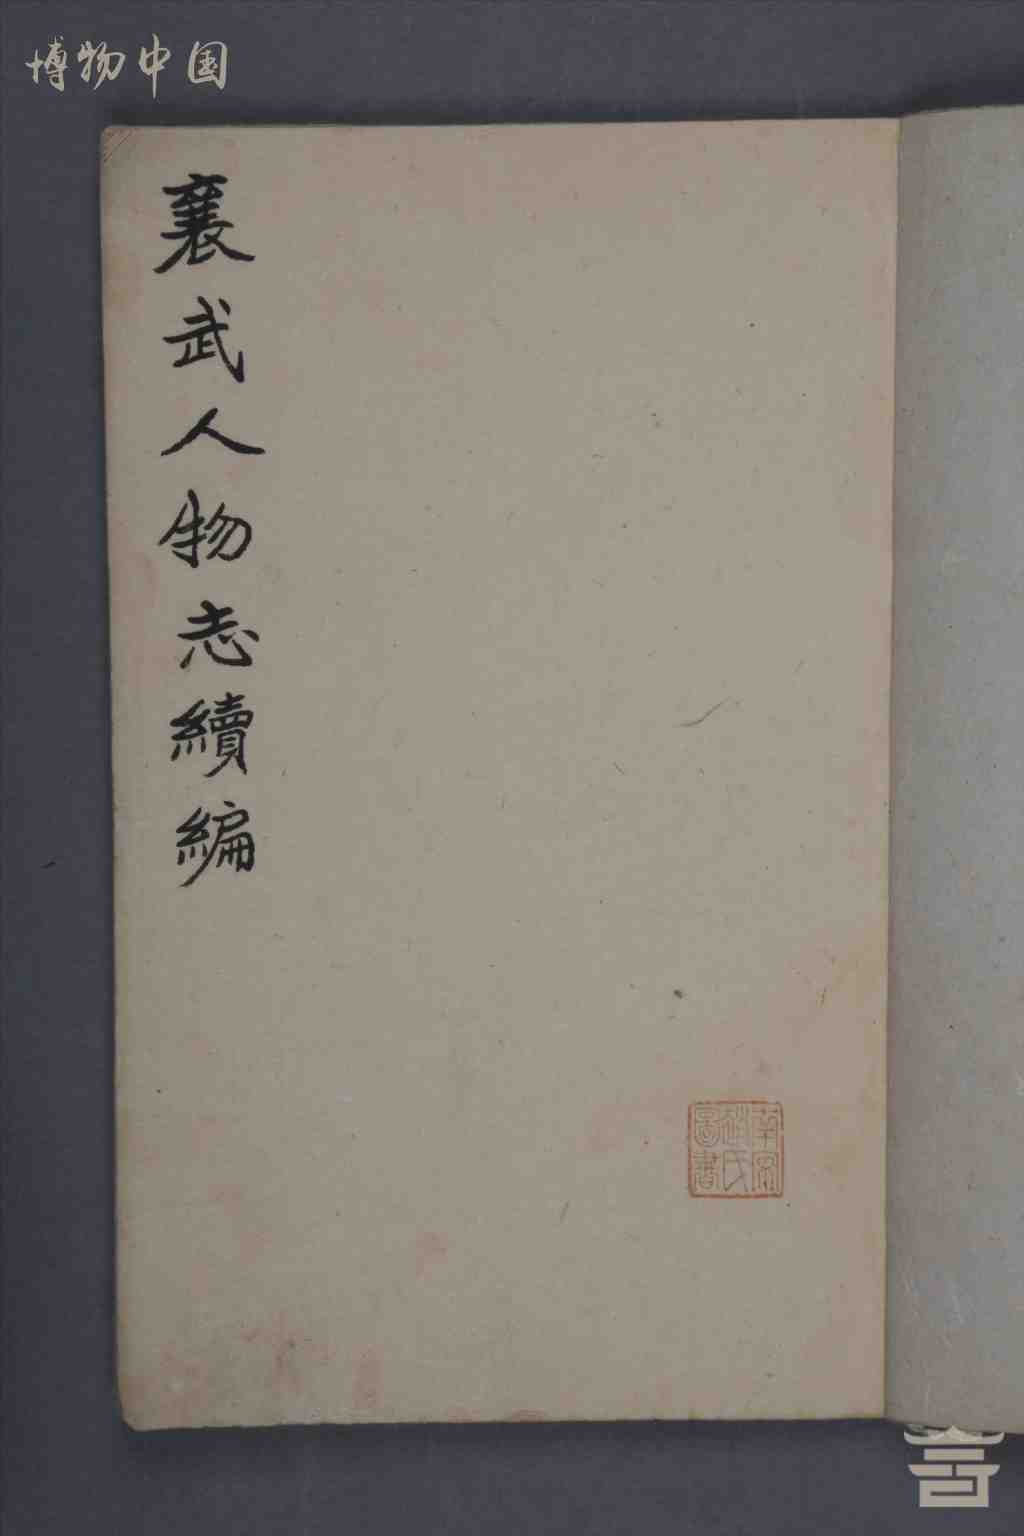 博物中国
襄武人物志續編
南安
趙氏
圖書